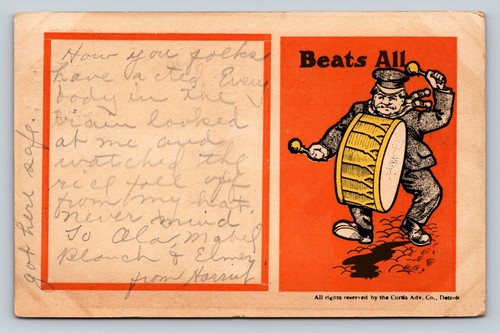 How you folks
have acted Every
body in the
train looked
at me and
watched the
rice fall off
from my hat.
never mind
To Ola, Mabel
Blanch & Elmer
from Harriet
got here safe.
Beats All
All rights reserved by the Curtis Adv. Co., Detroit